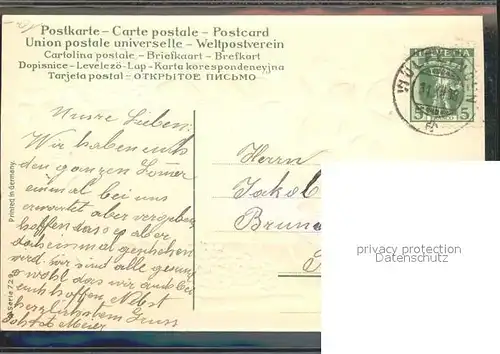 Postkarte – Carte postale – Postcard
Union postale universelle – Weltpostverein
Cartolina postale – Briefkaart – Brefkort
Dopisnice – Levelező-Lap – Karta korespondencyjna
Tarjeta postal – ОТКРЫТОЕ ПИСЬМО
HELVETIA
5 5
Unsre Lieben!
Wir haben euch
den ganzen Somer
einmal bei uns
erwartet aber vergebens
hoffen dass es aber
doch einmal geschehen
wird wir sind alle gesund
wohl das wir auch bei
euch hoffen Nebst
herzlichstem Gruss
Meier
Herrn
Jakob
Brun
Printed in Germany.
Serie 728
privacy protection
Datenschutz